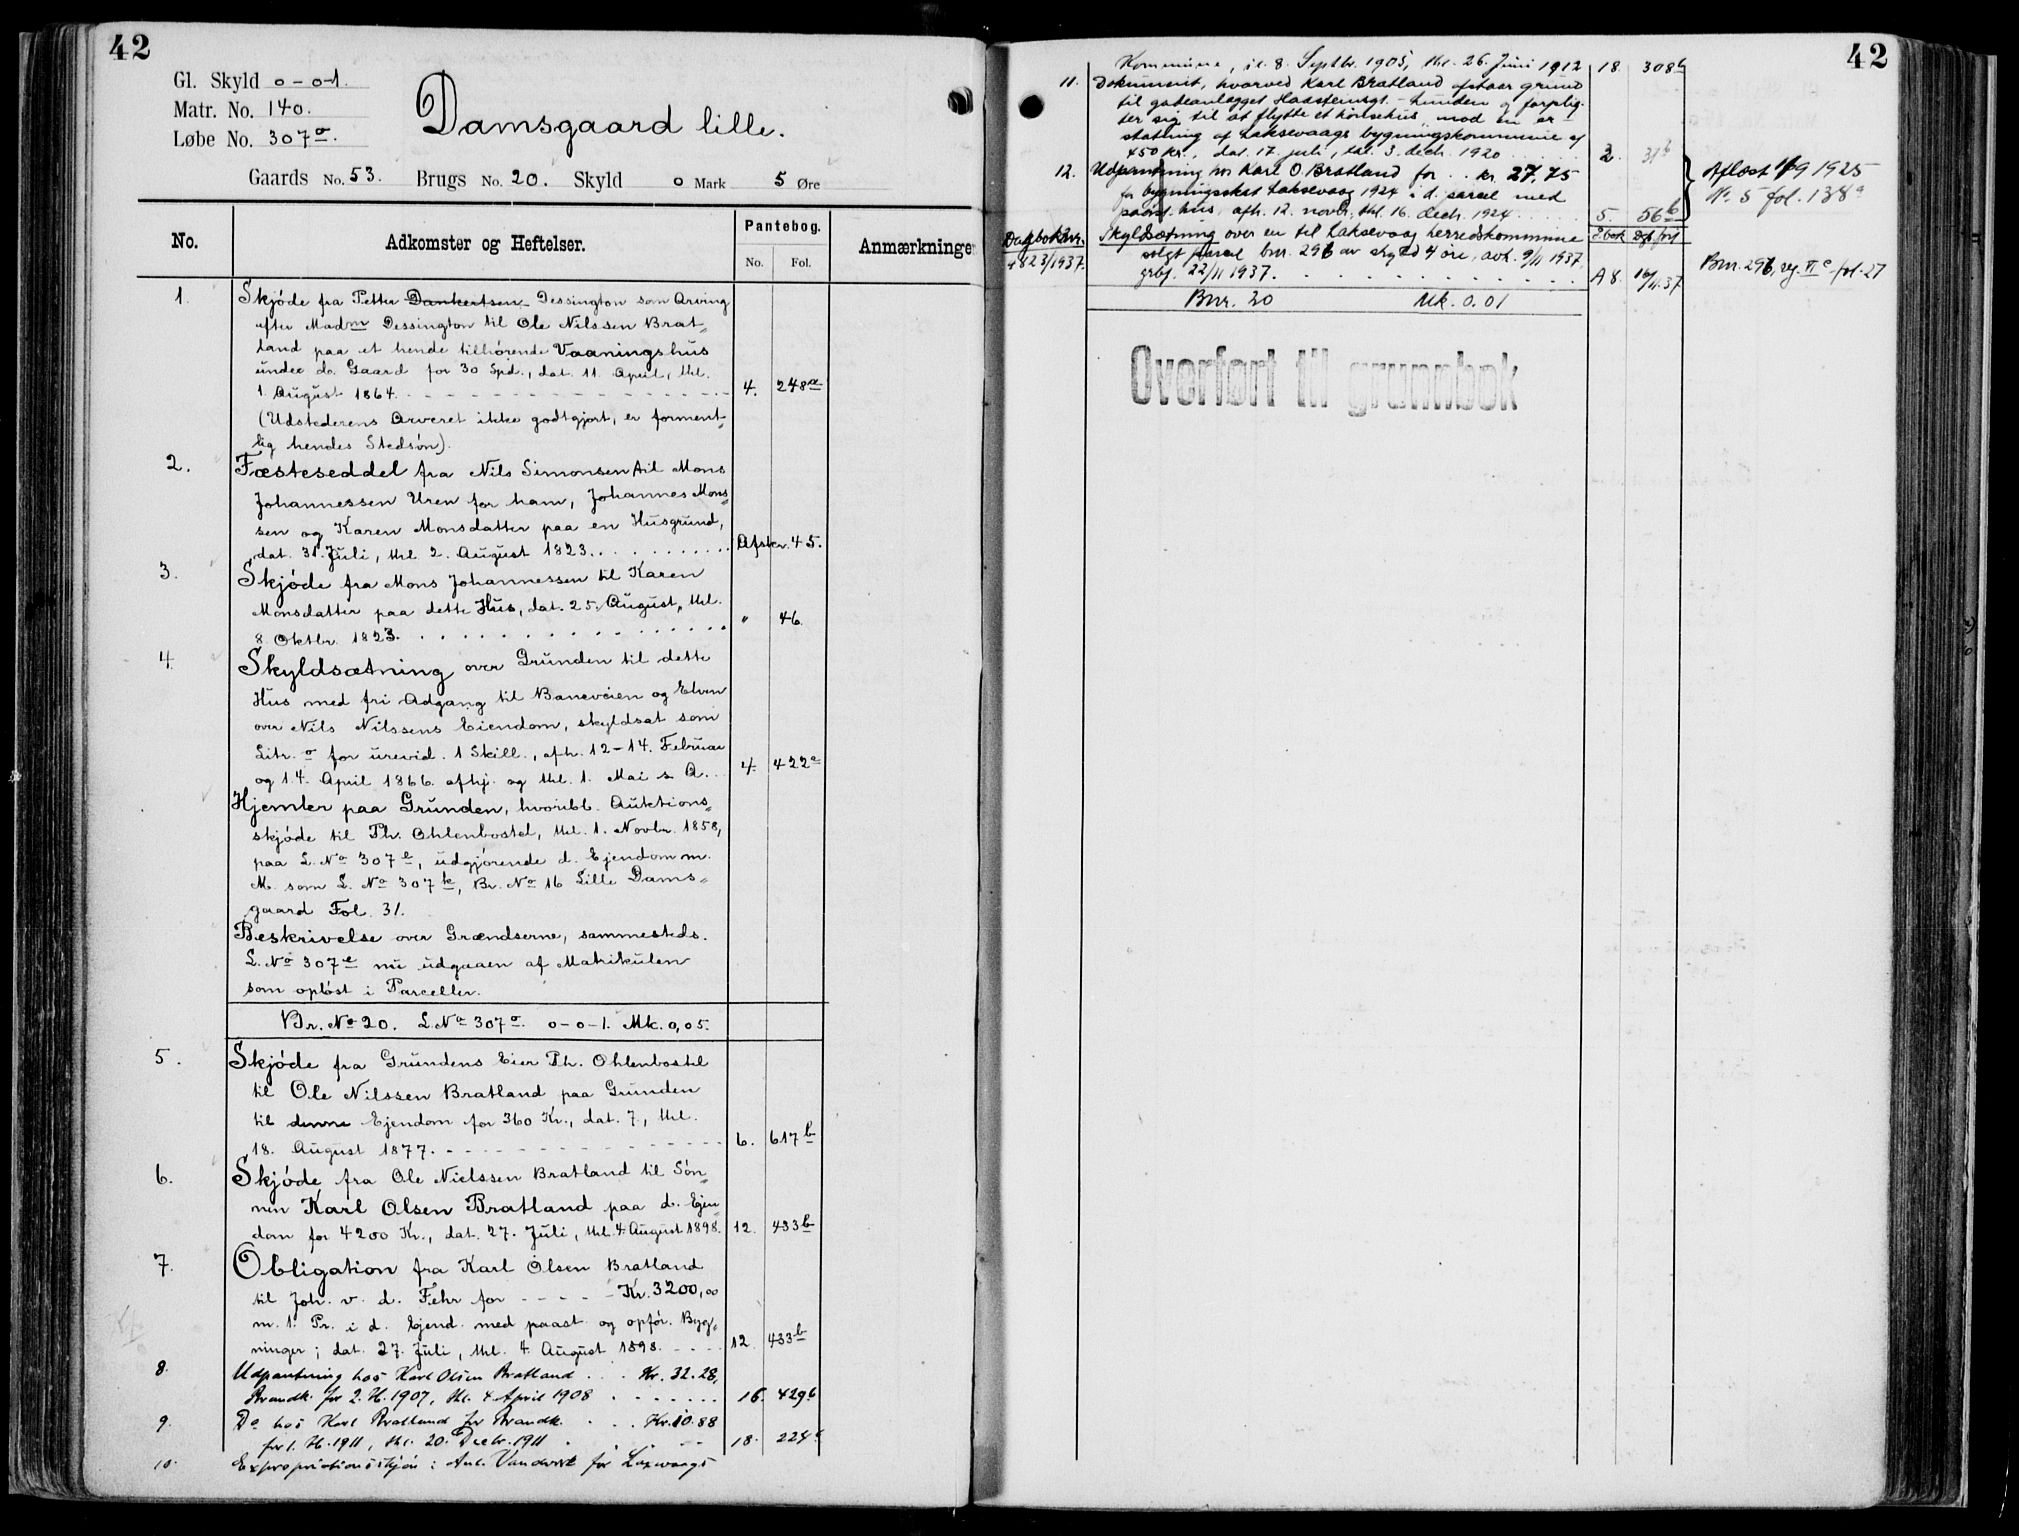 42
Gl. Skyld 0-0-1.
Matr. No. 140.
Løbe No. 307o.
Damsgaard lille.
Gaards No. 53. Brugs No. 20. Skyld 0 Mark 5 Øre
No. Adkomster og Heftelser. Pantebog. No. Fol. Anmærkninge
1. Skjøde fra Petter Dankertsen Dessington som Arving
efter Madm Dessington til Ole Nilssen Brat„
land paa et hende tilhørende Vaaningshus
under do. Gaard for 30 Spd., dat. 11. April, thl.
1. August 1864. 4. 248a
(Udstederens Arveret ikke godtgjort, er forment„
lig hendes Stedsøn).
2. Fæsteseddel fra Nils Simonsen til Mons
Johannessen Uren for ham, Johannes Mons„
sen og Karen Monsdatter paa en Husgrund,
dat. 31. Juli, thl. 2. August 1823. Afskr. 45.
3. Skjøde fra Mons Johannessen til Karen
Monsdatter paa dette Hus, dat. 25. August, thl.
8. Oktbr. 1823. " 46.
4. Skyldsætning over Grunden til dette
Hus med fri Adgang til Baneveien og Elven
over Nils Nilssens Eiendom, skyldsat som
Litr. o for urevid. 1 Skill., afh. 12-14. Februar
og 14. April 1866. afhj. og thl. 1. Mai s. A. 4. 422a
Hjemler paa Grunden, hvoribl. Auktions„
skjøde til Ph. Ohlenbostel, thl. 1. Novbr. 1858,
paa L. No 307e, udgjørende d. Ejendom m.
M. som L. No 307k, Br. No 16 Lille Dams„
gaard Fol. 31.
Beskrivelse over Grændserne, sammesteds.
L. No 307e nu udgaaen af Matrikulen
som opløst i Parceller.
Br. No 20. L. No 307o. 0-0-1. Mk. 0,05.
5. Skjøde fra Grundens Eier Ph. Ohlenbostel
til Ole Nilssen Bratland paa Grunden
til denne Ejendom for 360 Kr., dat. 7., thl.
18. August 1877. 6. 617b
6. Skjøde fra Ole Nielssen Bratland til Søn„
nen Karl Olsen Bratland paa d. Ejen„
dom for 4200 Kr., dat. 27. Juli, thl. 4. August 1898. 12. 433b
7. Obligation fra Karl Olsen Bratland
til Joh. v. d. Fehr for Kr. 3200,00
m. 1. Pr. i d. Ejend. med paast. og opfør. Byg„
ninger; dat. 27. Juli, thl. 4. August 1898. 12. 433b
8. Udpantning hos Karl Olsen Bratland Kr. 32.28,
Brandk. for 2. H. 1907, thl. 4 April 1908 16. 429b
9. Do hos Karl Bratland for Brandk. Kr. 10.88
for 1. H. 1911, thl. 20. Decbr. 1911 18. 224
10. Expropriationsskjøn i Anl. Vandverk for Laxevaags
42
Kommune, d. 8. Septbr. 1905, thl. 26. Juni 1912 18. 308b
11. Dokument, hvorved Karl Bratland afstaar grund
til gadeanlægget Haasteinsgt. - lunden og forplig-
ter sig til at flytte et hønsehus, mod en er-
statning af Laksevaags bygningskommune af
450 kr., dat. 17. juli, thl. 3. decb. 1920 2. 31b
12. Udpantning hos Karl O. Bratland for kr. 27,75
for bygningsskat Laksevaag 1924 i d. parcel med
paast. hus, afh. 12. novbr. thl. 16. decb. 1924 5. 56b
Aflæst 1/9 1925
No 5 fol. 138a
Dagboknr. 4823/1937. Skyldsætning over en til Laksevaag herredskommune
solgt parcel bnr. 296 av skyld 4 øre, avh. 9/11 1937,
grbf. 22/11 1937. A 8. 16/11.37
Bnr. 296, reg. VI c fol. 27
Bnr. 20 Mk. 0.01
Overført til grunnbok